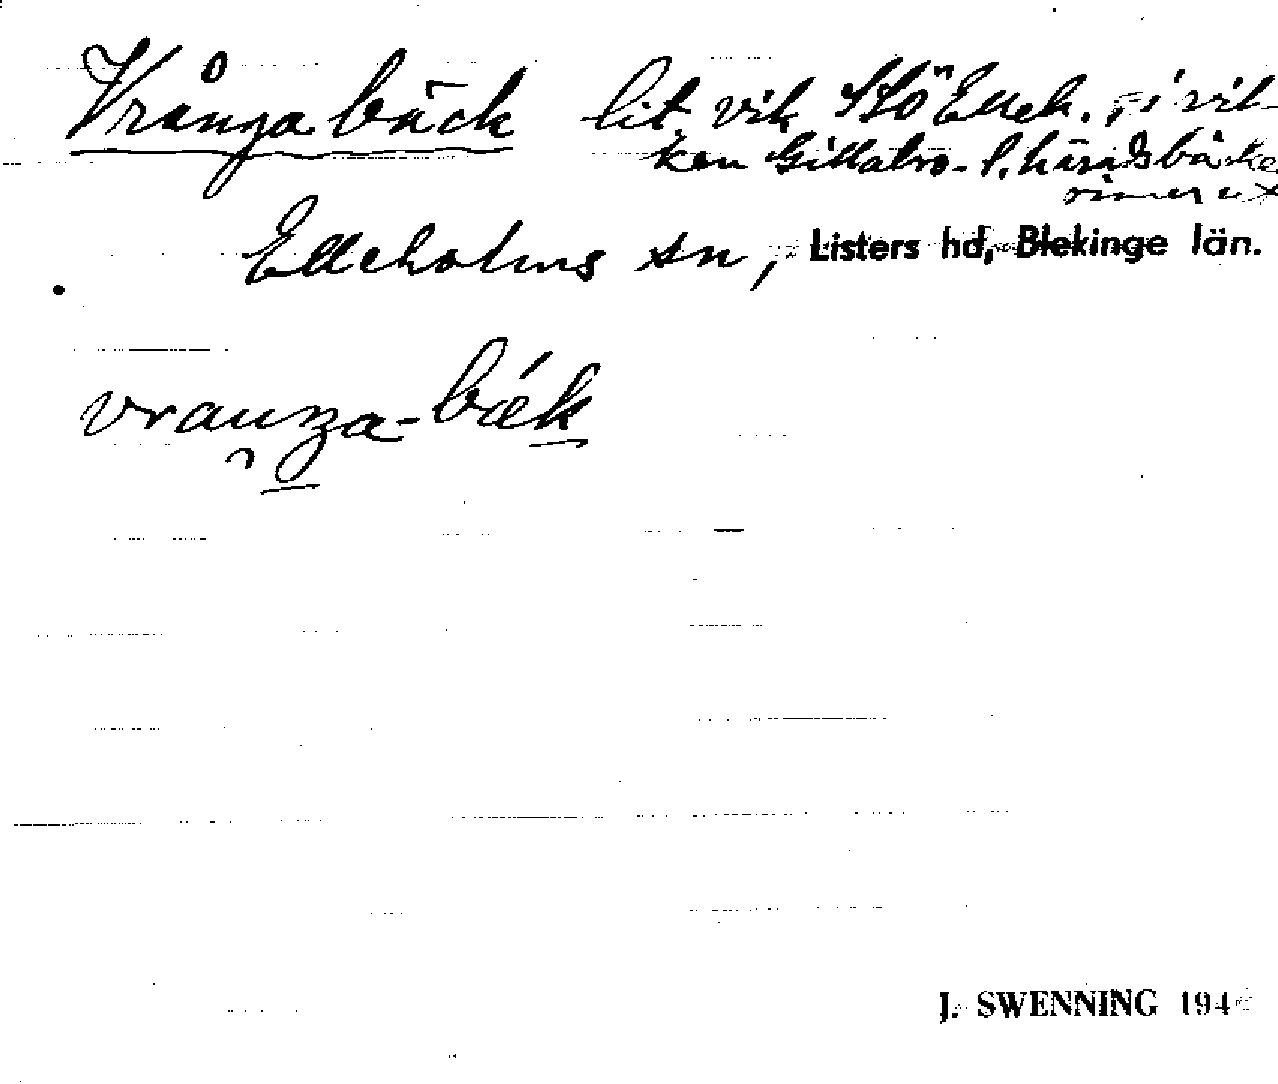 Vrånga bäck lit. vik StÖ Elleh., i vil-
ken Gillabro- l. häradsbäcke
rinner ut
Elleholms sn, Listers hd, Blekinge län.
vranga-bæk
J. SWENNING 194